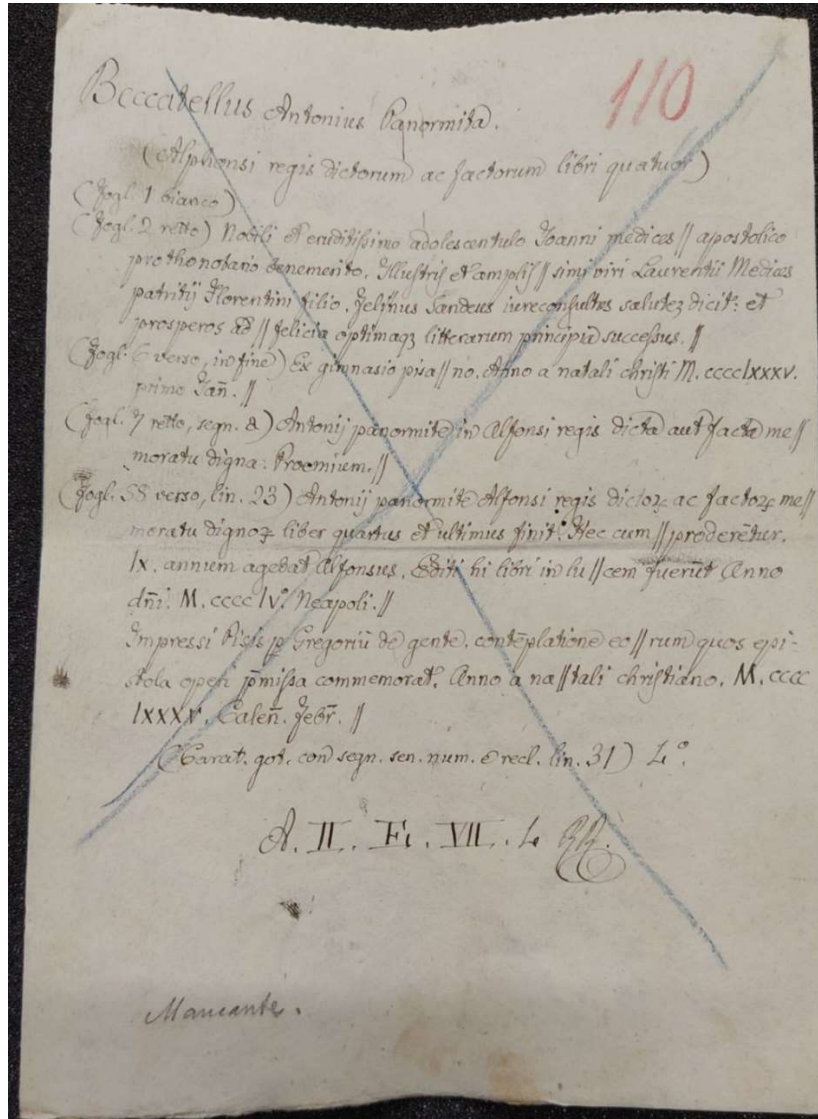 110
Beccatellus Antonius Panormita.
(Alphonsi regis dictorum ac factorum libri quatuor)
(Fogl. 1 bianco)
(Fogl. 2 retto) Nobili et eruditissimo adolescentulo Joanni medices || apostolico
prothonotario benemerito. Illustris et amplis || simi viri Laurentii Medices
patritij Florentini filio. Felinus Sandeus iureconsultus salutez dicit: et
prosperos ad || felicia optimaqz litterarum principia successus. ||
(Fogl. 6 verso, in fine) Ex gimnasio pisa || no. Anno a natali christi M. cccclxxxv.
primo Jan̄. ||
(Fogl. 7 retto, segn. a) Antonij panormite in Alfonsi regis dicta aut facta me ||
moratu digna: Proemium. ||
(Fogl. 55 verso, lin. 23) Antonij panormite Alfonsi regis dictoꝝ ac factoꝝ me ||
moratu dignoꝝ liber quartus et ultimus finit. Hec cum || proderētur.
lx. annum agebat Alfonsus. Editi hi libri in lu || cem fuerūt Anno
dn̄i. M. cccc lv. Neapoli. ||
Impressi Pisis ꝑ Gregoriū de gente. contēplatione eo || rum quos epi-
stola operi p̄missa commemorat. Anno a na || tali christiano. M. cccc
lxxxv. Calen̄. Febr̄. ||
(Carat. got. con segn. sen. num. e recl. lin. 31) 4.º
A. II. F. VII. 4 RR.
Mancante.